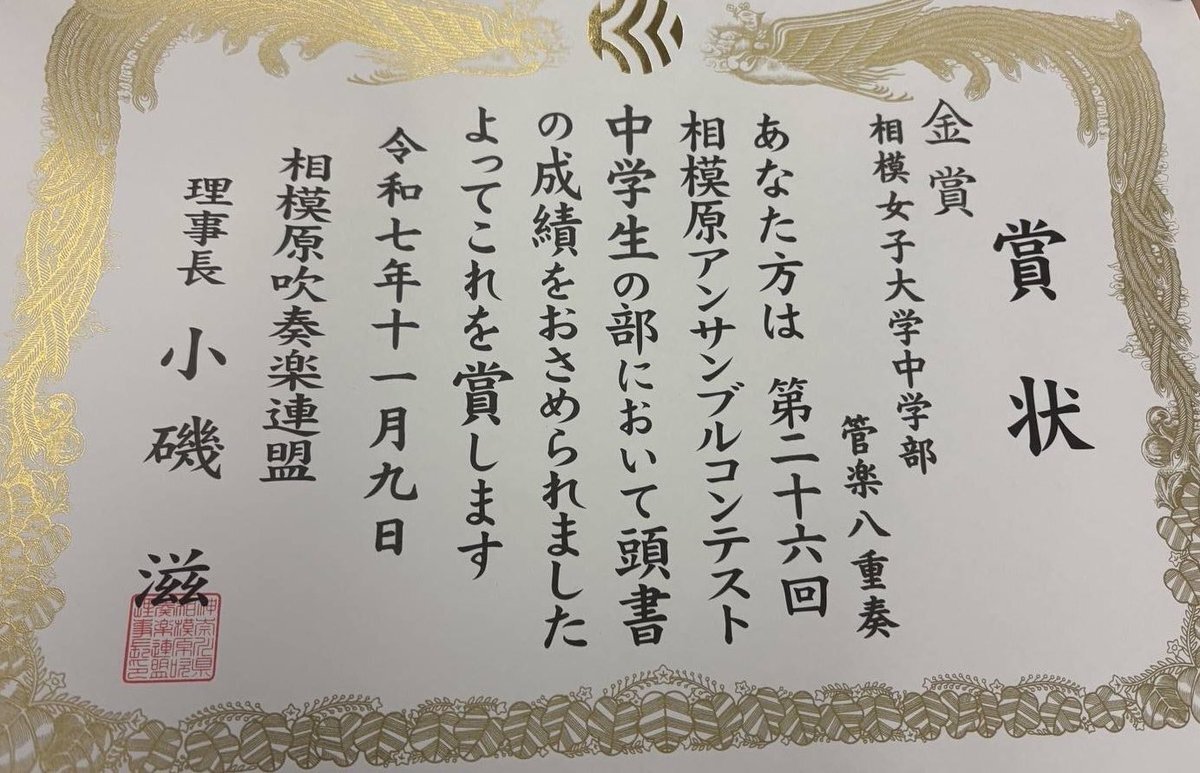 賞状
金賞
相模女子大学中学部
管楽八重奏
あなた方は 第二十六回
相模原アンサンブルコンテスト
中学生の部において頭書
の成績をおさめられました
よってこれを賞します
令和七年十一月九日
相模原吹奏楽連盟
理事長 小磯 滋